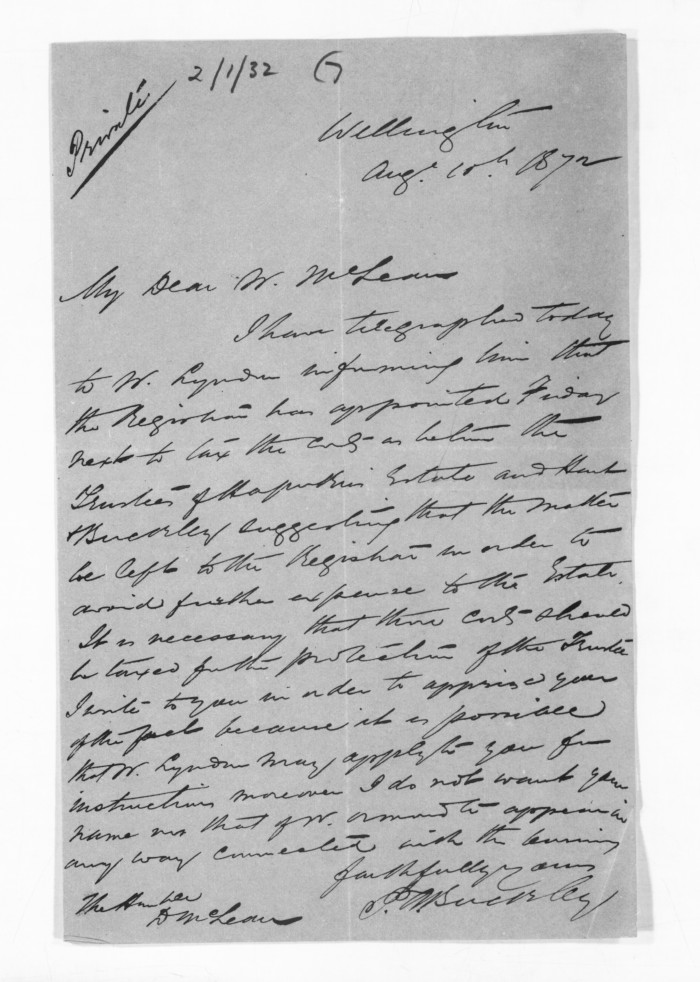 Private
2/1/32
Wellington
Augt 10th 1872
My Dear Mr. McLean
I have telegraphed today
to Mr. Lyndon informing him that
the Registrar has appointed Friday
next to tax the costs as between the
Trustees of Estate and Hart
& Buckley suggesting that the matter
be left to the Registrar in order to
avoid further expense to the Estate.
It is necessary that these costs should
be taxed for the protection of the Trustee
I write to you in order to apprise you
of the fact because it is possible
that Mr. Lyndon may apply to you for
instructions moreover I do not want your
name nor that of Mr. Ormond to appear in
any way connected with the business
faithfully yours
P. A. Buckley
The Honble
D McLean